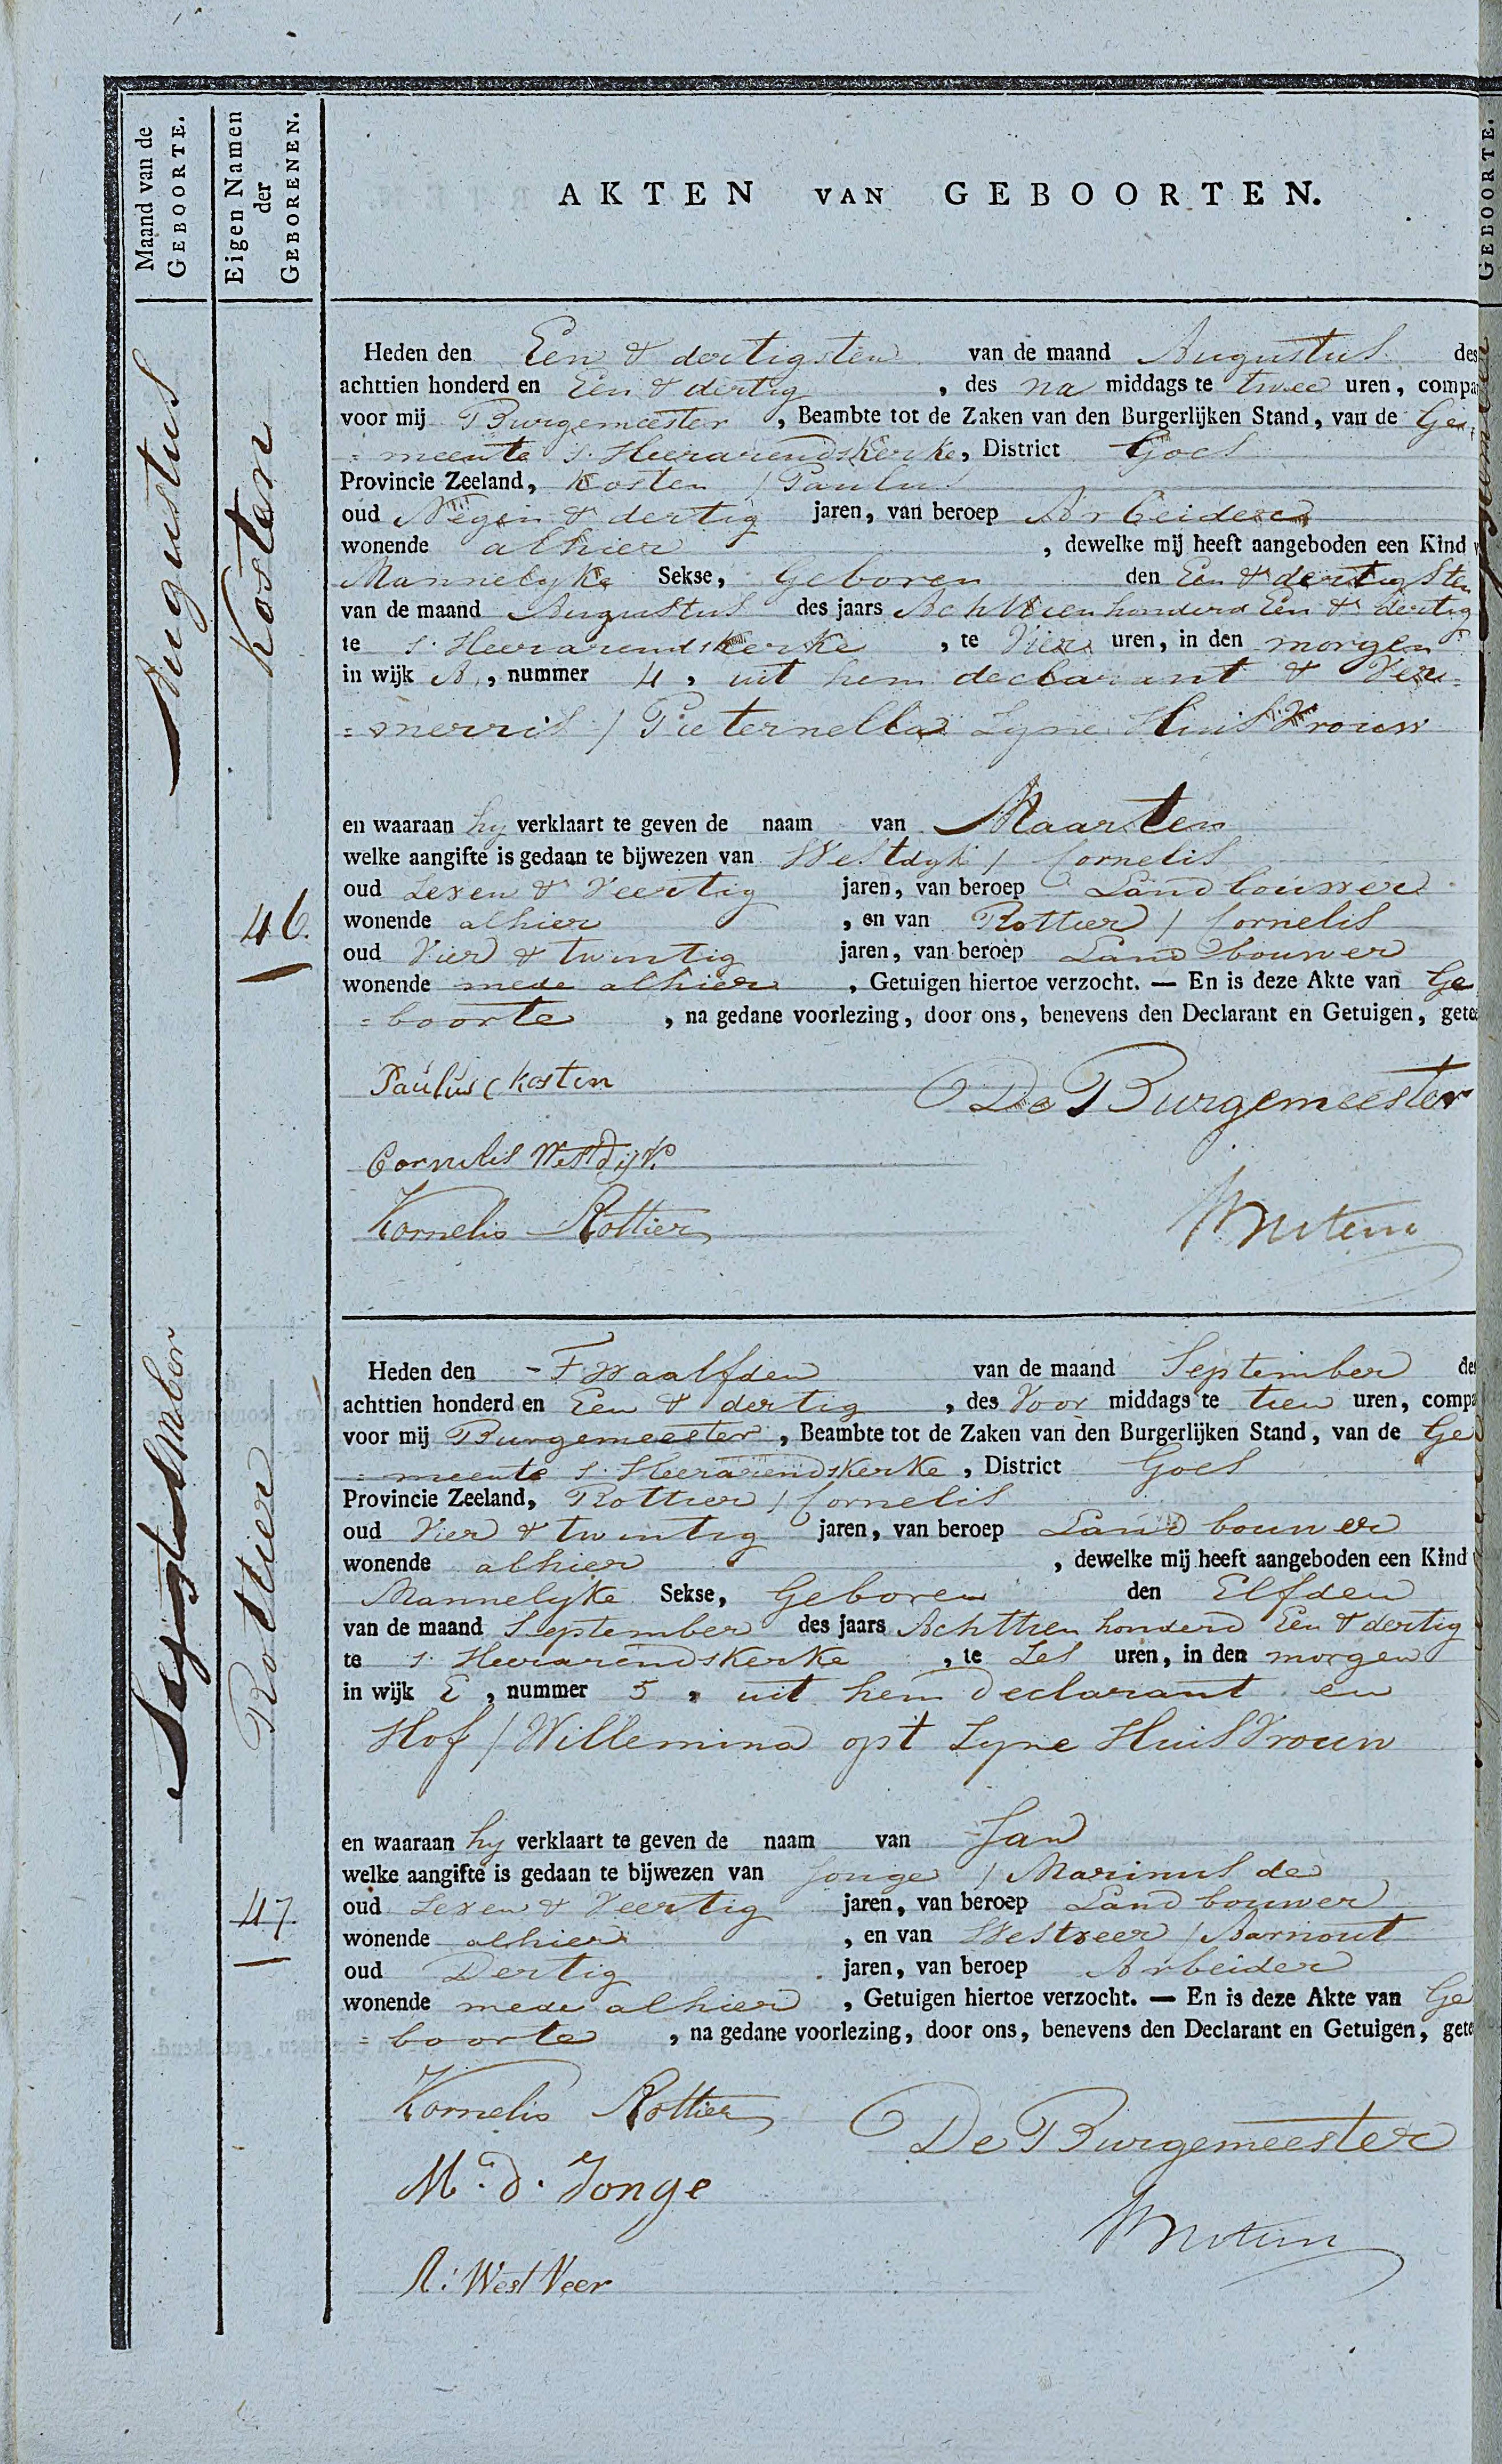 Maand van de
GEBOORTE.
Eigen Namen
der
GEBORENEN.
AKTEN VAN GEBOORTEN.
GEBOORTE.
Augustus
Kosten
46.
Heden den Een & dertigsten van de maand Augustus des
achttien honderd en Een & dertig , des na middags te twee uren, compa
voor mij Burgemeester , Beambte tot de Zaken van den Burgerlijken Stand, van de Ge=
=meente s. Heerarendskerke, District Goes
Provincie Zeeland, Kosten / Paulus
oud Negen & dertig jaren, van beroep Arbeider
wonende alhier , dewelke mij heeft aangeboden een Kind v
Mannelyke Sekse, Geboren den Een & dertigsten
van de maand Augustus des jaars Achttien honderd Een & dertig
te s. Heerarendskerke , te Vier uren, in den morgen
in wijk A, nummer 4, uit hem declarant & Ver=
=merris / Pieternella Zyne Huis Vrouw
en waaraan hy verklaart te geven de naam van Maarten
welke aangifte is gedaan te bijwezen van Westdyk / Cornelis
oud Zeven & Veertig jaren, van beroep Landbouwer
wonende alhier , en van Rottier / Cornelis
oud Vier & twintig jaren, van beroep Land bouwer
wonende mede alhier , Getuigen hiertoe verzocht. — En is deze Akte van Ge
=boorte , na gedane voorlezing, door ons, benevens den Declarant en Getuigen, getee
Paulus Kosten
De Burgemeester
Cornelis Westdijk
Kornelis Rottier
September
Rottier
47.
Heden den Twaalfden van de maand September des
achttien honderd en Een & dertig , des Voor middags te tien uren, compa
voor mij Burgemeester , Beambte tot de Zaken van den Burgerlijken Stand, van de Ge
=meente s. Heerarendskerke , District Goes
Provincie Zeeland, Rottier / Cornelis
oud Vier & twintig jaren, van beroep Land bouwer
wonende alhier , dewelke mij heeft aangeboden een Kind v
Mannelyke Sekse, Geboren den Elfden
van de maand September des jaars Achttien honderd Een & dertig
te s. Heerarendskerke , te Zes uren, in den morgen
in wijk E , nummer 5 , uit hem Declarant en
Hof / Willemina opt Zyne Huis Vrouw
en waaraan hy verklaart te geven de naam van Jan
welke aangifte is gedaan te bijwezen van Jonge / Marinus de
oud Zeven & Veertig jaren, van beroep Land bouwer
wonende alhier , en van Westveer / Aarnout
oud Dertig jaren, van beroep Arbeider
wonende mede alhier , Getuigen hiertoe verzocht. — En is deze Akte van Ge
=boorte , na gedane voorlezing, door ons, benevens den Declarant en Getuigen, gete
Kornelis Rottier
De Burgemeester
M. d. Jonge
A: West Veer